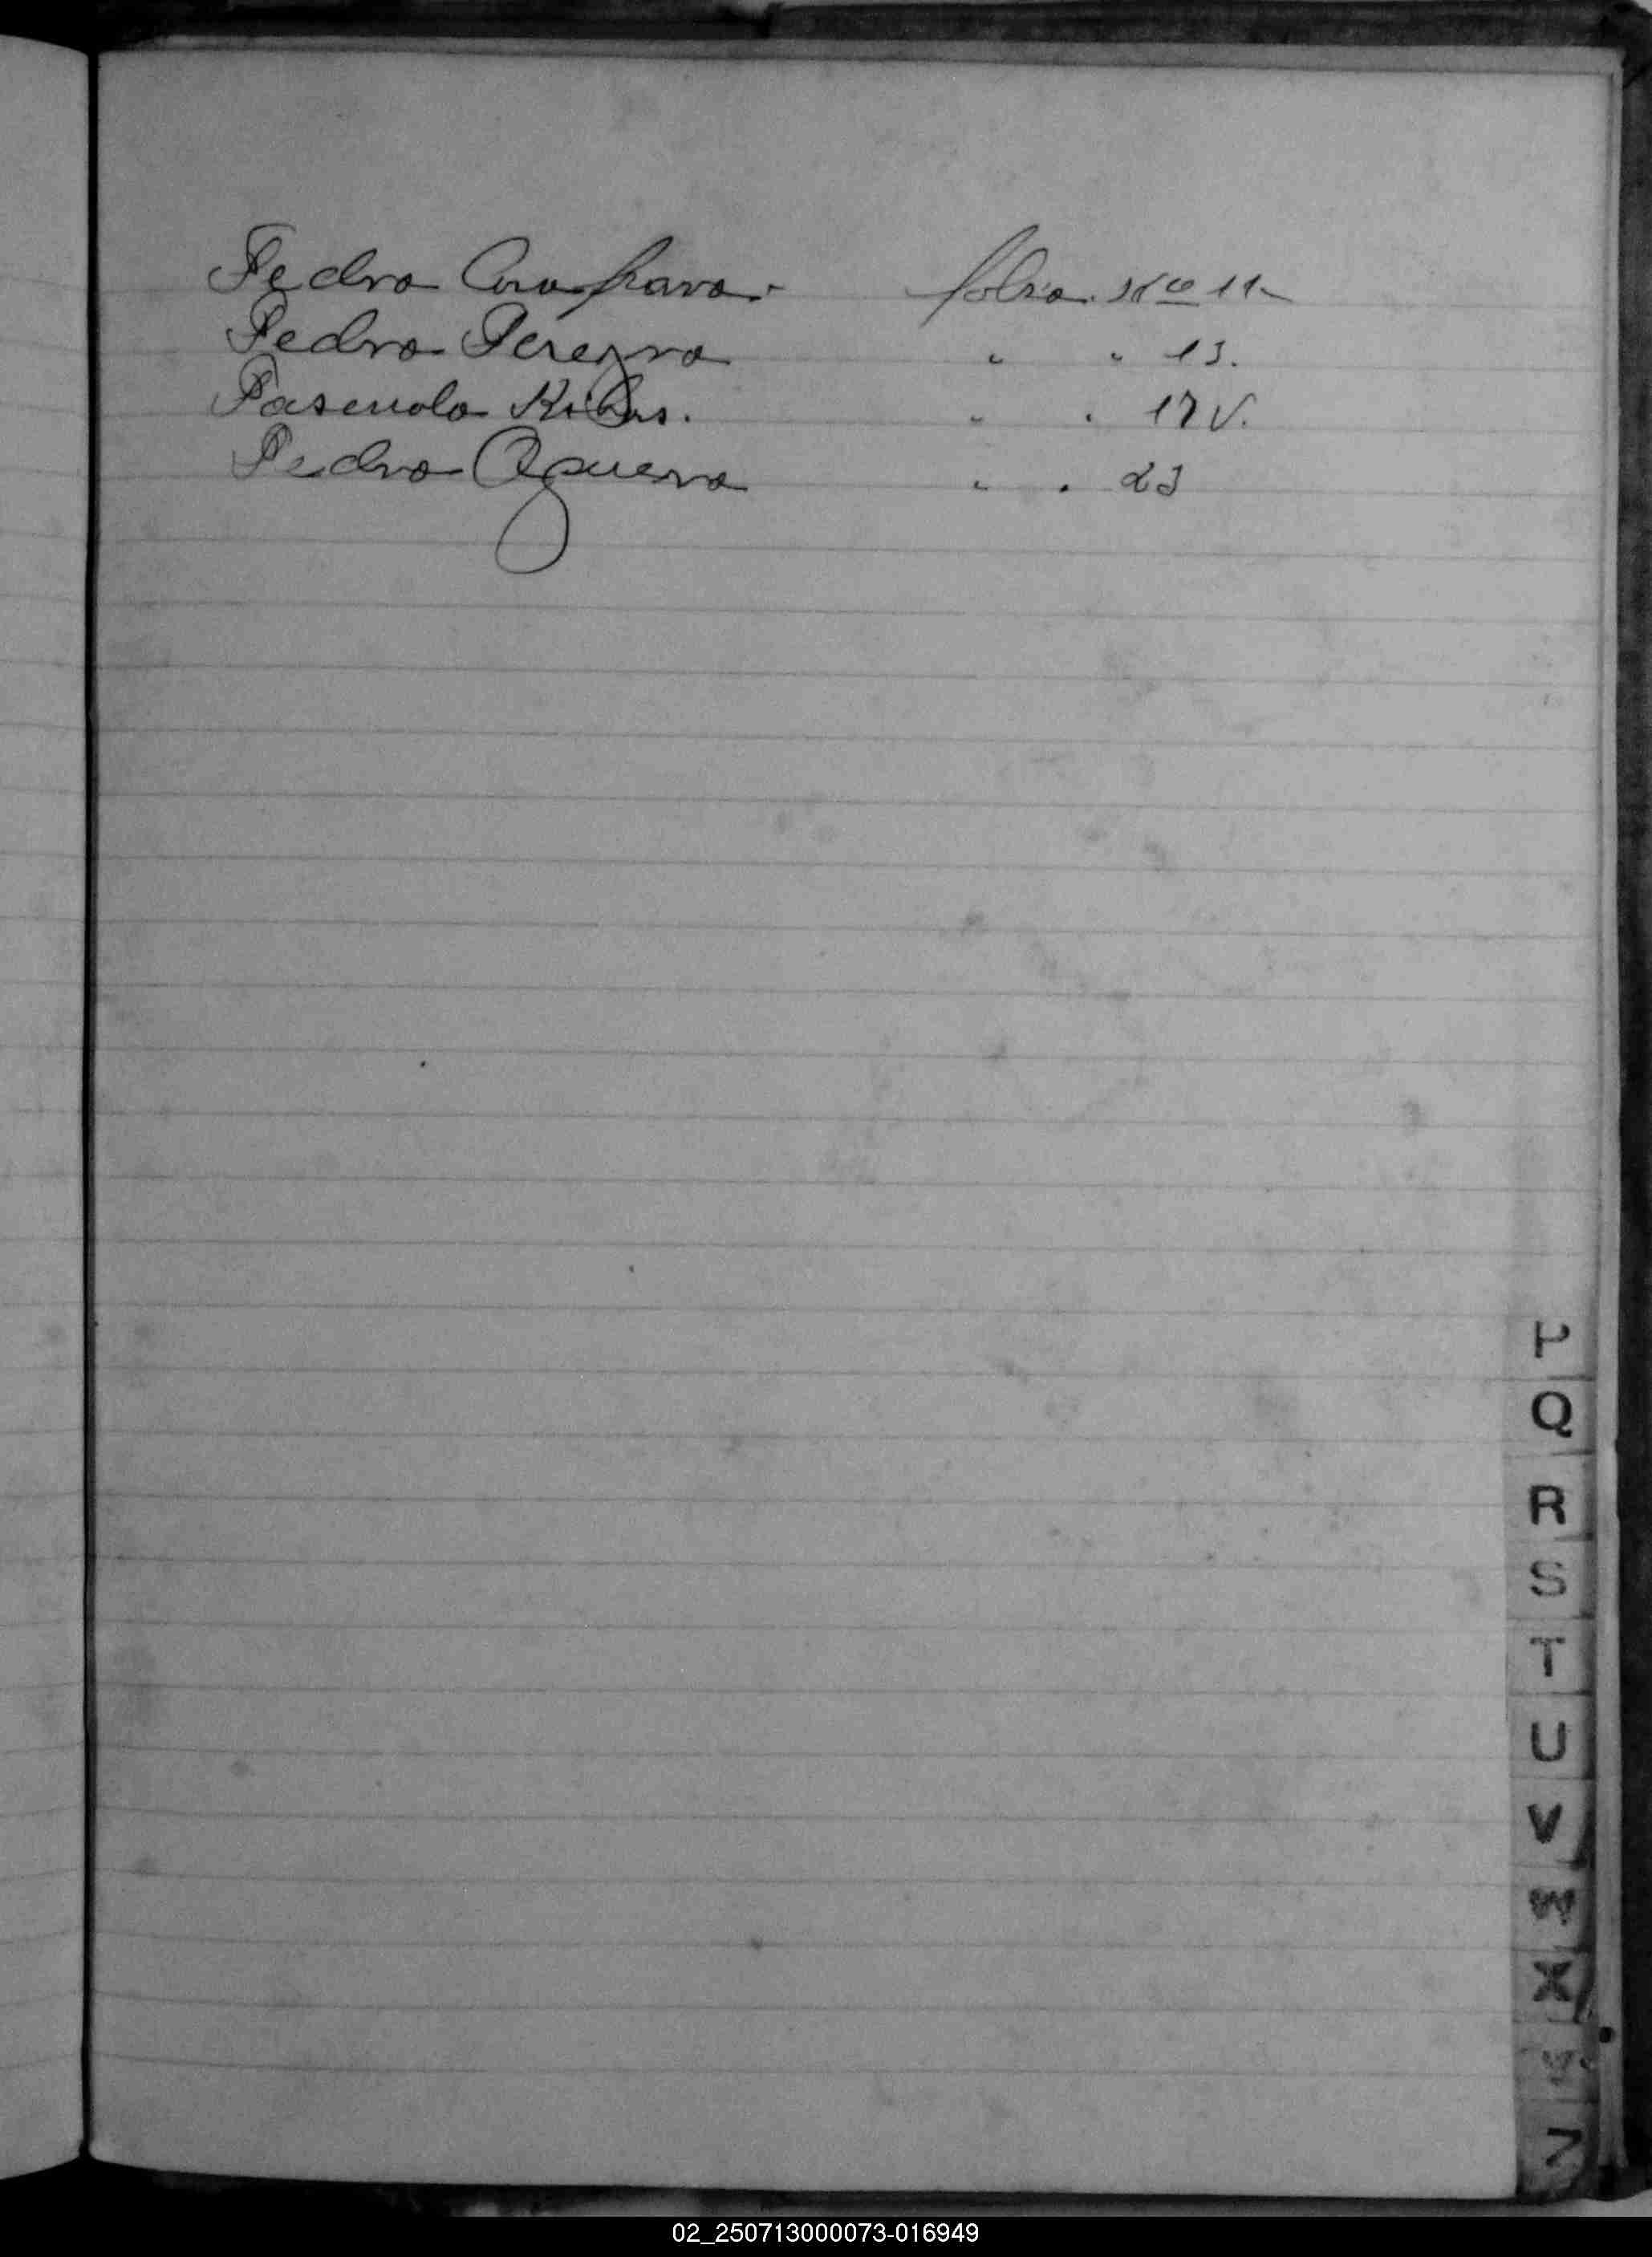 Pedro
folio Nro 11
Pedro Pereyra " " 13.
Pascuala Ribas. " " 17 V.
Pedro Aguerra " " 23
P
Q
R
S
T
U
V
W
X
Y
Z
02_250713000073-016949